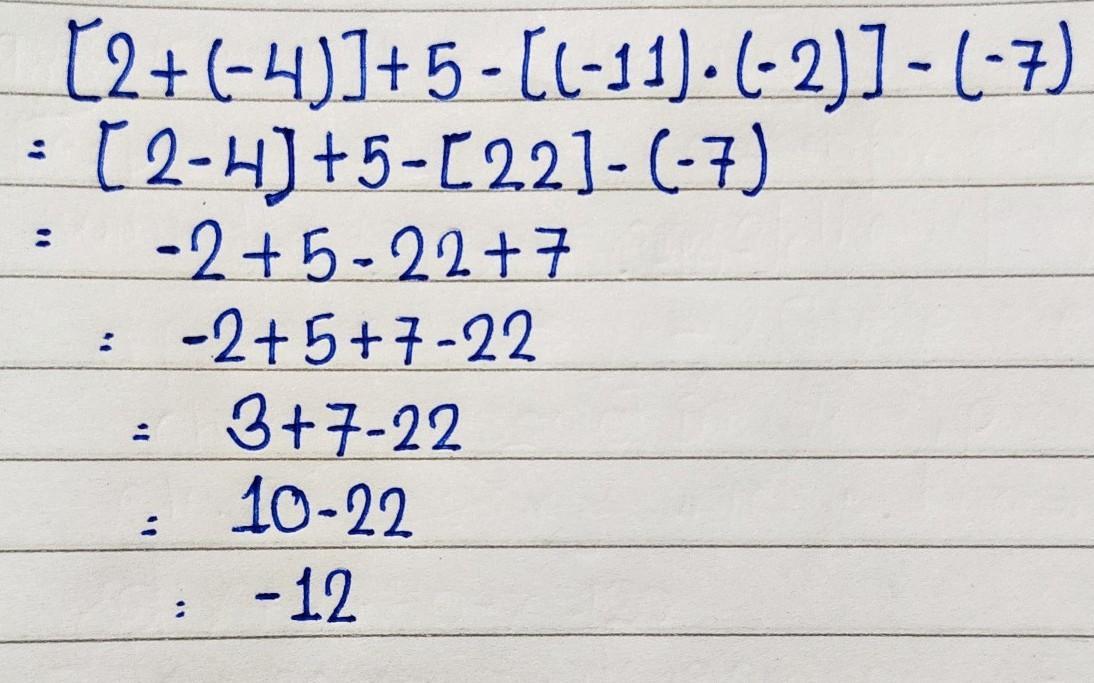 [2+(-4)]+5-[(-11)·(-2)]-(-7)
= [2-4]+5-[22]-(-7)
= -2+5-22+7
= -2+5+7-22
= 3+7-22
= 10-22
= -12